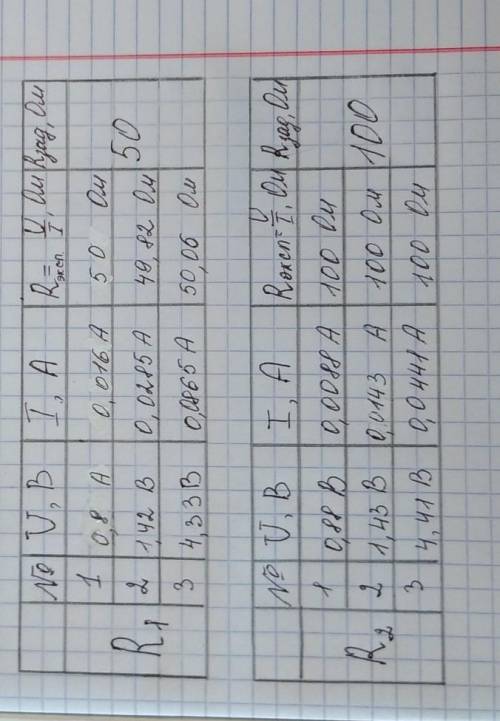 № U, В I, А Rэксп. = U/I, Ом Rзад, Ом
R1 1 0,8 А 0,016 А 50 Ом 50
2 1,42 В 0,0285 А 49,82 Ом
3 4,33 В 0,0865 А 50,06 Ом
№ U, В I, А Rэксп = U/I, Ом Rзад, Ом
R2 1 0,88 В 0,0088 А 100 Ом 100
2 1,43 В 0,0143 А 100 Ом
3 4,41 В 0,0441 А 100 Ом